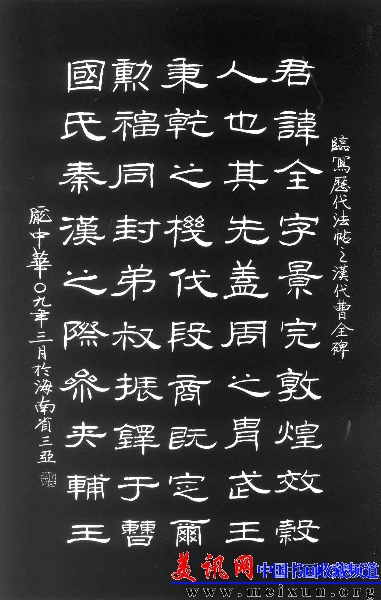 臨寫歷代法帖之漢代曹全碑
君諱全字景完敦煌效穀
人也其先蓋周之胄武王
秉乾之機伐殷商既定爾
勳福同封弟叔振鐸于曹
國氏秦漢之際參夾輔王
龐中華〇九年三月於海南省三亞
美讯网 中国书画收藏频道
www.meixun.org